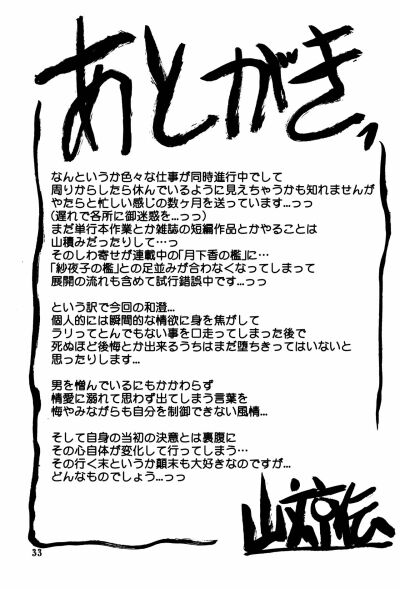 あとがき、
なんというか色々な仕事が同時進行中でして
周りからしたら休んでいるように見えちゃうかも知れませんが
やたらと忙しい感じの数ヶ月を送っています…っっ
(遅れて各所に御迷惑を…っっ)
まだ単行本作業とか雑誌の短編作品とかやることは
山積みだったりして…っ
そのしわ寄せが連載中の「月下香の檻」に…
「紗夜子の檻」との足並みが合わなくなってしまって
展開の流れも含めて試行錯誤中です…っっ
という訳で今回の和澄…
個人的には瞬間的な情欲に身を焦がして
ラリってとんでもない事を口走ってしまった後で
死ぬほど後悔とか出来るうちはまだ堕ちきってはいないと
思ったりします…
男を憎んでいるにもかかわらず
情愛に溺れて思わず出てしまう言葉を
悔やみながらも自分を制御できない風情…
そして自身の当初の決意とは裏腹に
その心自体が変化して行ってしまう…
その行く末というか顛末も大好きなのですが…
どんなものでしょう…っっ
山文京伝
33